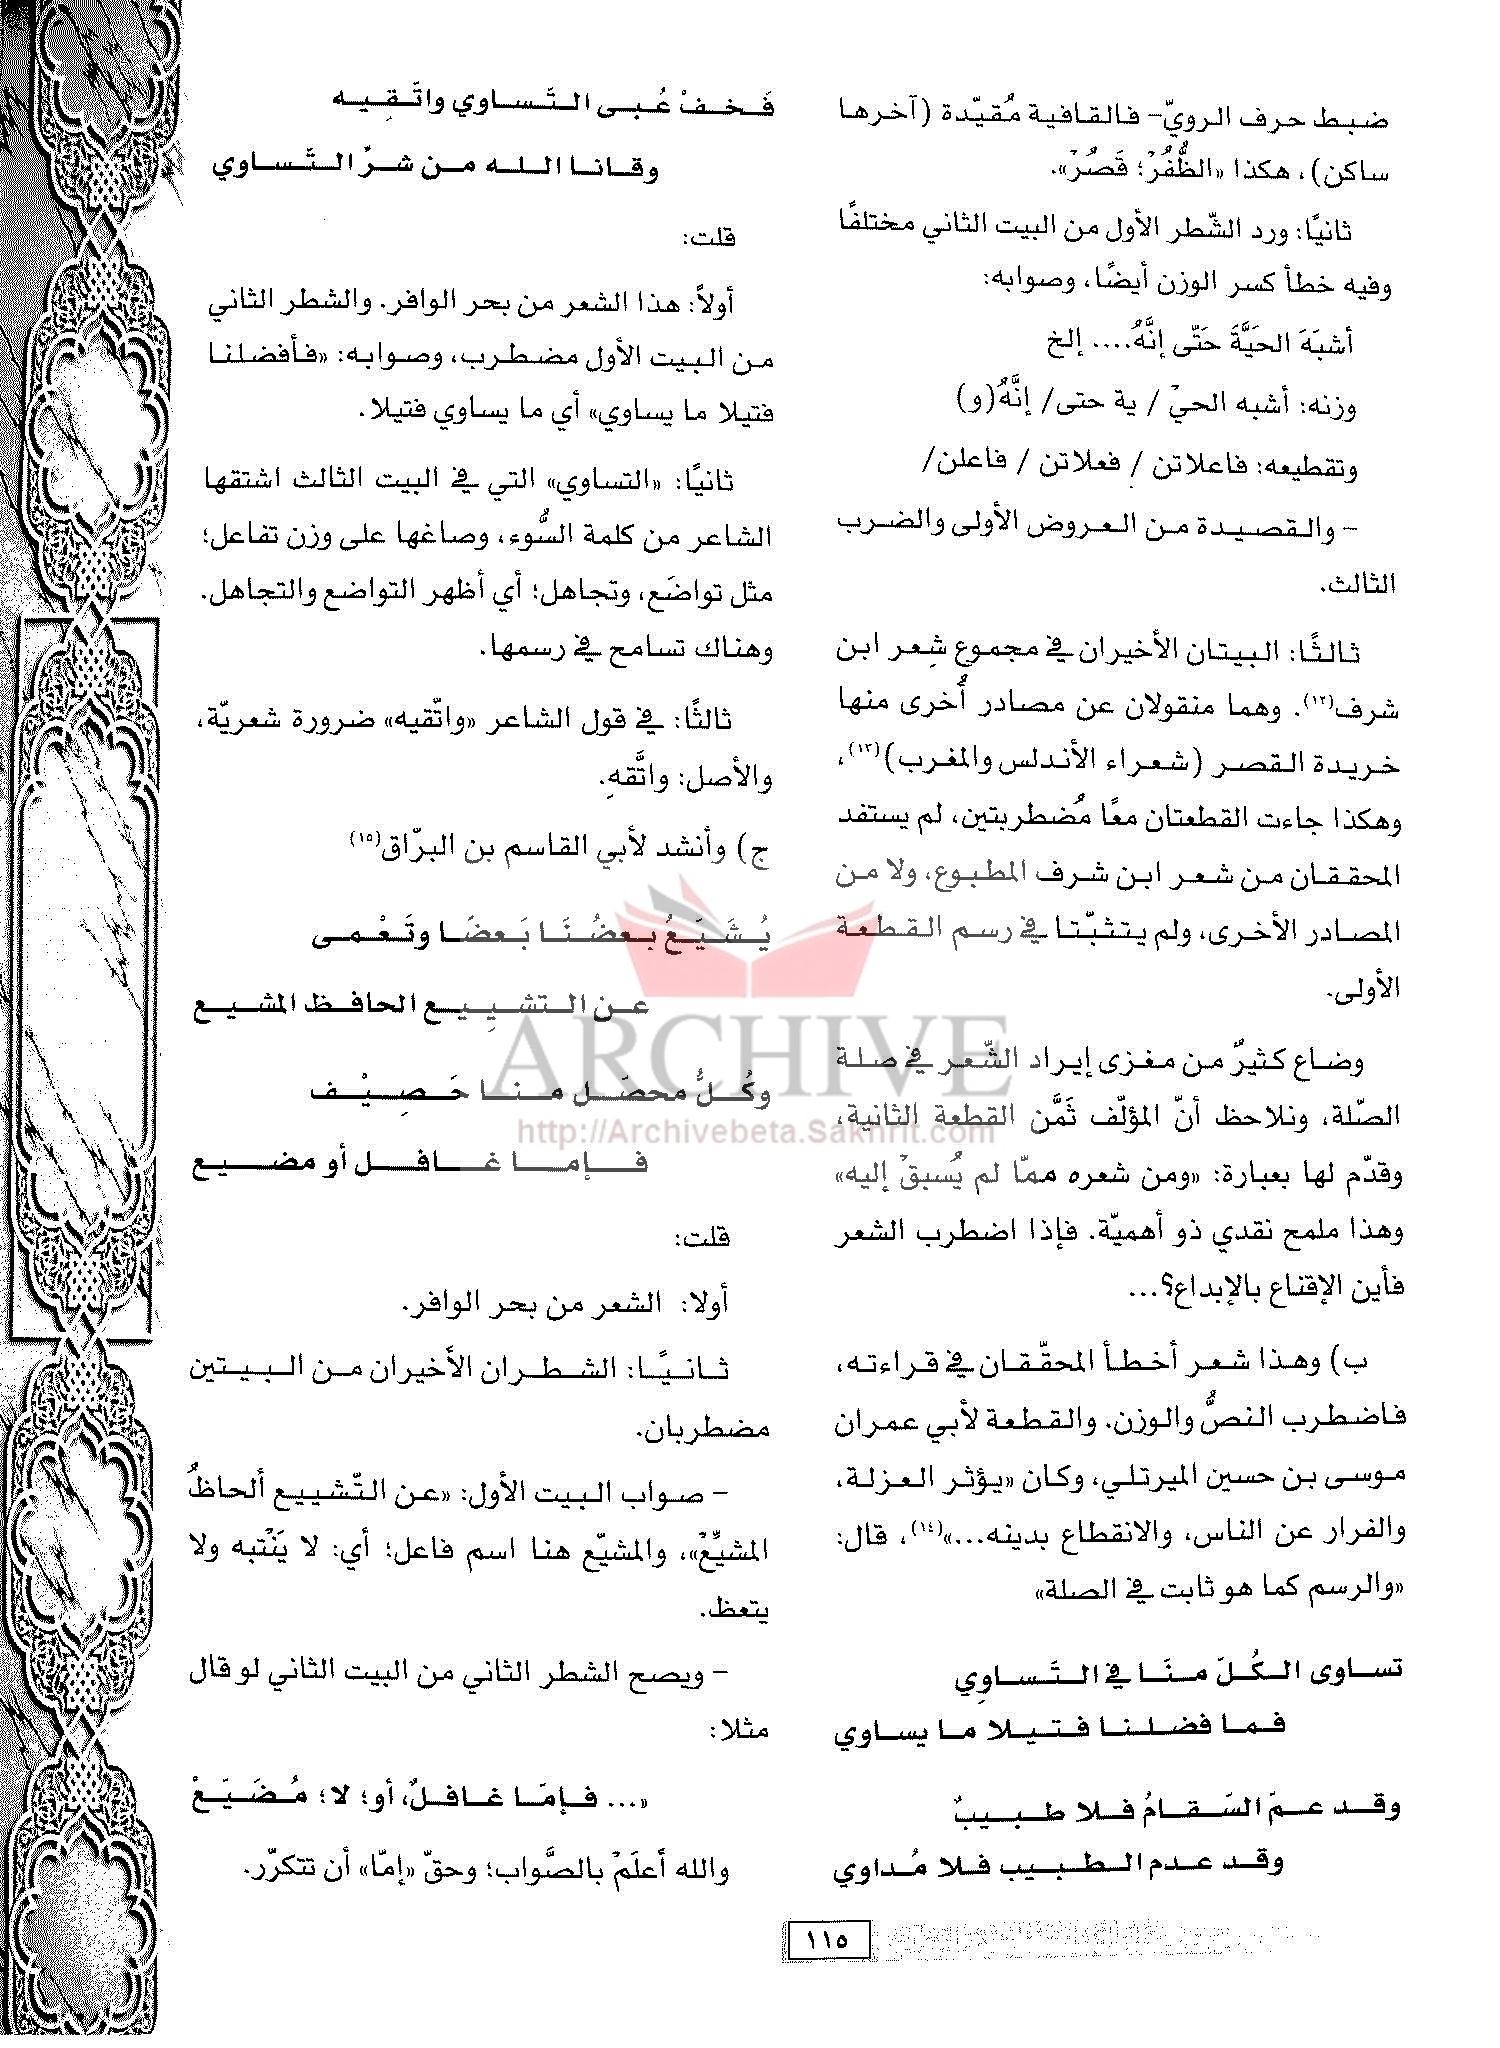 ضبط حرف الرويّ- فالقافية مُقيّدة (آخرها
ساكن)، هكذا «الظُّفُرْ؛ قَصُرْ».
ثانيًا: ورد الشّطر الأول من البيت الثاني مختلفًا
وفيه خطأ كسر الوزن أيضًا، وصوابه:
أشبَهَ الحَيَّةَ حَتّى إنَّهُ.... إلخ
وزنه: أشبه الحيْ / ية حتى/ إنَّهُ(و)
وتقطيعه: فاعلاتن / فعلاتن / فاعلن/
- والقصيدة من العروض الأولى والضرب
الثالث.
ثالثًا: البيتان الأخيران في مجموع شِعر ابن
شرف(١٢). وهما منقولان عن مصادر أُخرى منها
خريدة القصر (شعراء الأندلس والمغرب)(١٣)،
وهكذا جاءت القطعتان معًا مُضطربتين، لم يستفد
المحققان من شعر ابن شرف المطبوع، ولا من
المصادر الأخرى، ولم يتثبّتا في رسم القطعة
الأولى.
وضاع كثيرٌ من مغزى إيراد الشّعر في صلة
الصّلة، ونلاحظ أنّ المؤلّف ثَمَّن القطعة الثانية،
وقدّم لها بعبارة: «ومن شعره ممّا لم يُسبقْ إليه»
وهذا ملمح نقدي ذو أهميّة. فإذا اضطرب الشعر
فأين الإقناع بالإبداع؟...
ب) وهذا شعر أخطأ المحقّقان في قراءته،
فاضطرب النصُّ والوزن. والقطعة لأبي عمران
موسى بن حسين الميرتلي، وكان «يؤثر العزلة،
والفرار عن الناس، والانقطاع بدينه...»(١٤)، قال:
«والرسم كما هو ثابت في الصلة»
تساوى الكُلّ منّا في التَّساوِي
فما فضلنا فتيلا ما يساوي
وقد عمّ السّقامُ فلا طبيبٌ
وقد عدم الطبيب فلا مُداوي
١١٥
فَخفْ عُبى التَّساوي واتَّقِيه
وقانا الله من شرِّ التَّساوي
قلت:
أولاً: هذا الشعر من بحر الوافر. والشطر الثاني
من البيت الأول مضطرب، وصوابه: «فأفضلنا
فتيلا ما يساوي» أي ما يساوي فتيلا.
ثانيًا: «التساوي» التي في البيت الثالث اشتقها
الشاعر من كلمة السُّوء، وصاغها على وزن تفاعل؛
مثل تواضَع، وتجاهل؛ أي أظهر التواضع والتجاهل.
وهناك تسامح في رسمها.
ثالثًا: في قول الشاعر «واتّقيه» ضرورة شعريّة،
والأصل: واتَّقهِ.
ج) وأنشد لأبي القاسم بن البرّاق(١٥)
يُشَيّعُ بعضُنَا بَعضَا وتَعْمى
عن التشيِيع الحافظ المشيع
وكُلُّ محصّل منا حَصِيْف
فإما غافل أو مضيع
قلت:
أولا: الشعر من بحر الوافر.
ثانيًا: الشطران الأخيران من البيتين
مضطربان.
- صواب البيت الأول: «عن التّشييع ألحاظُ
المشيِّعْ»، والمشيّع هنا اسم فاعل؛ أي: لا يَنْتبه ولا
يتعظ.
- ويصح الشطر الثاني من البيت الثاني لو قال
مثلا:
«... فإمّا غافلٌ، أو؛ لا؛ مُضَيّعْ
والله أعلَمْ بالصَّواب؛ وحقّ «إمّا» أن تتكرّر.
ARCHIVE
http://Archivebeta.Sakhrit.com